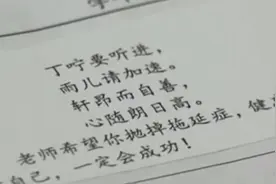 丁咛要听进，
雨儿请加速。
轩昂而自善，
心随朗日高。
老师希望你抛掉拖延症，健
自己，一定会成功！